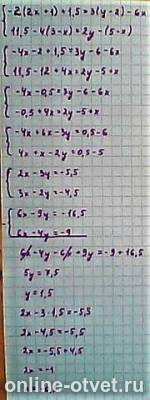 -2(2x+1)+1,5=3(y-2)-6x
11,5-4(3-x)=2y-(5-x)
-4x-2+1,5=3y-6-6x
11,5-12+4x=2y-5+x
-4x-0,5=3y-6-6x
-0,5+4x=2y-5+x
-4x+6x-3y=0,5-6
4x+x-2y=0,5-5
2x-3y=-5,5
3x-2y=-4,5
6x-9y=-16,5
6x-4y=-9
6x-4y-6x+9y=-9+16,5
5y=7,5
y=1,5
2x-3·1,5=-5,5
2x-4,5=-5,5
2x=-5,5+4,5
2x=-1
online-otvet.ru